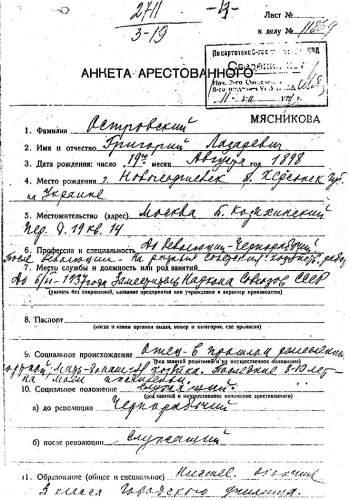 2711 -4-
3-19
Лист №
к делу № 11809
По картотеке
Сведений нет
АНКЕТА АРЕСТОВАННОГО
МЯСНИКОВА
1. Фамилия Островский
2. Имя и отчество Григорий Лазаревич
3. Дата рождения: число 19го месяц Августа год 1898
4. Место рождения г. Новогеоргиевск б. Херсонск губ
на Украине
5. Местожительство (адрес) Москва Б. Казихинский
пер. д. 19 кв. 14
6. Профессия и специальность До Революции - Чернорабочий
После Революции - На разной советской хозяйств. работе
7. Место службы и должность или род занятий
До 6/VI-1937 года Заместитель Наркома Совхозов СССР
(указать без сокращений, название предприятия или учреждения и характер производства)
8. Паспорт
(когда и каким органом выдан, номер и категория, где прописан)
9. Социальное происхождение Отец - в прошлом ремесленник
(род занятий родителей и их имущественное положение)
Мать - домашн. хозяйка. Последние 8-10 лет -
на моем иждивении.
10. Социальное положение служащий
(род занятий и имущественное положение арестованного)
а) до революции Чернорабочий
б) после революции Служащий
11. Образование (общее и специальное) Низшее. окончил
3 класса Городского училища.